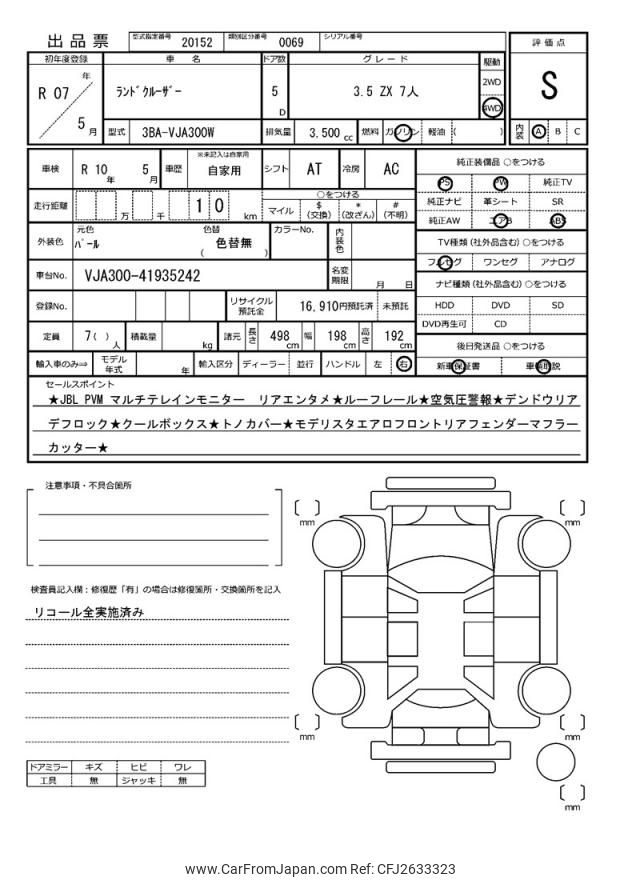 出品票
型式指定番号 20152 類別区分番号 0069 シリアル番号
評価点
初年度登録 車名 ドア数 グレード 駆動
R 07 年 5 月
ランドクルーザー
5 D
3.5 ZX 7人
2WD
4WD
S
型式 3BA-VJA300W 排気量 3,500 cc 燃料 ガソリン 軽油 ( )
内装 A B C
車検 R 10 年 5 月 車歴 ※未記入は自家用 自家用 シフト AT 冷房 AC
純正装備品 ○をつける
PS PW 純正TV
走行距離 万 千 1 0 km
○をつける
マイル $ (交換) * (改ざん) # (不明)
純正ナビ 革シート SR
純正AW エアB ABS
外装色 元色 パール 色替 ( 色替無 ) カラーNo. 内装色
TV種類 (社外品含む) ○をつける
フルセグ ワンセグ アナログ
車台No. VJA300-41935242 名変期限 月 日
ナビ種類 (社外品含む) ○をつける
登録No. リサイクル預託金 16,910円預託済 未預託
HDD DVD SD
DVD再生可 CD
定員 7( ) 人 積載量 kg 諸元 長さ 498 cm 幅 198 cm 高さ 192 cm
後日発送品 ○をつける
輸入車のみ⇒ モデル年式 年 輸入区分 ディーラー 並行 ハンドル 左 右
新車保証書 車輌取説
セールスポイント
★JBL PVM マルチテレインモニター リアエンタメ★ルーフレール★空気圧警報★デンドウリア
デフロック★クールボックス★トノカバー★モデリスタエアロフロントリアフェンダーマフラー
カッター★
注意事項・不具合箇所
mm
mm
検査員記入欄:修復歴「有」の場合は修復箇所・交換箇所を記入
リコール全実施済み
mm
mm
ドアミラー キズ ヒビ ワレ
工具 無 ジャッキ 無
mm
www.CarFromJapan.com Ref: CFJ2633323